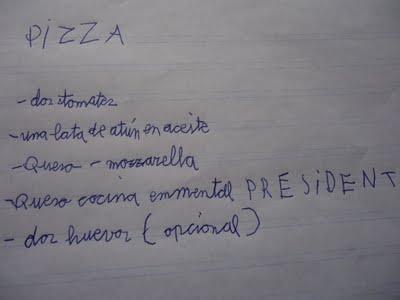 PIZZA
- dos tomates
- una lata de atún en aceite
- Queso - mozzarella
- Queso cocina emmental PRESIDENT
- dos huevos (opcional)